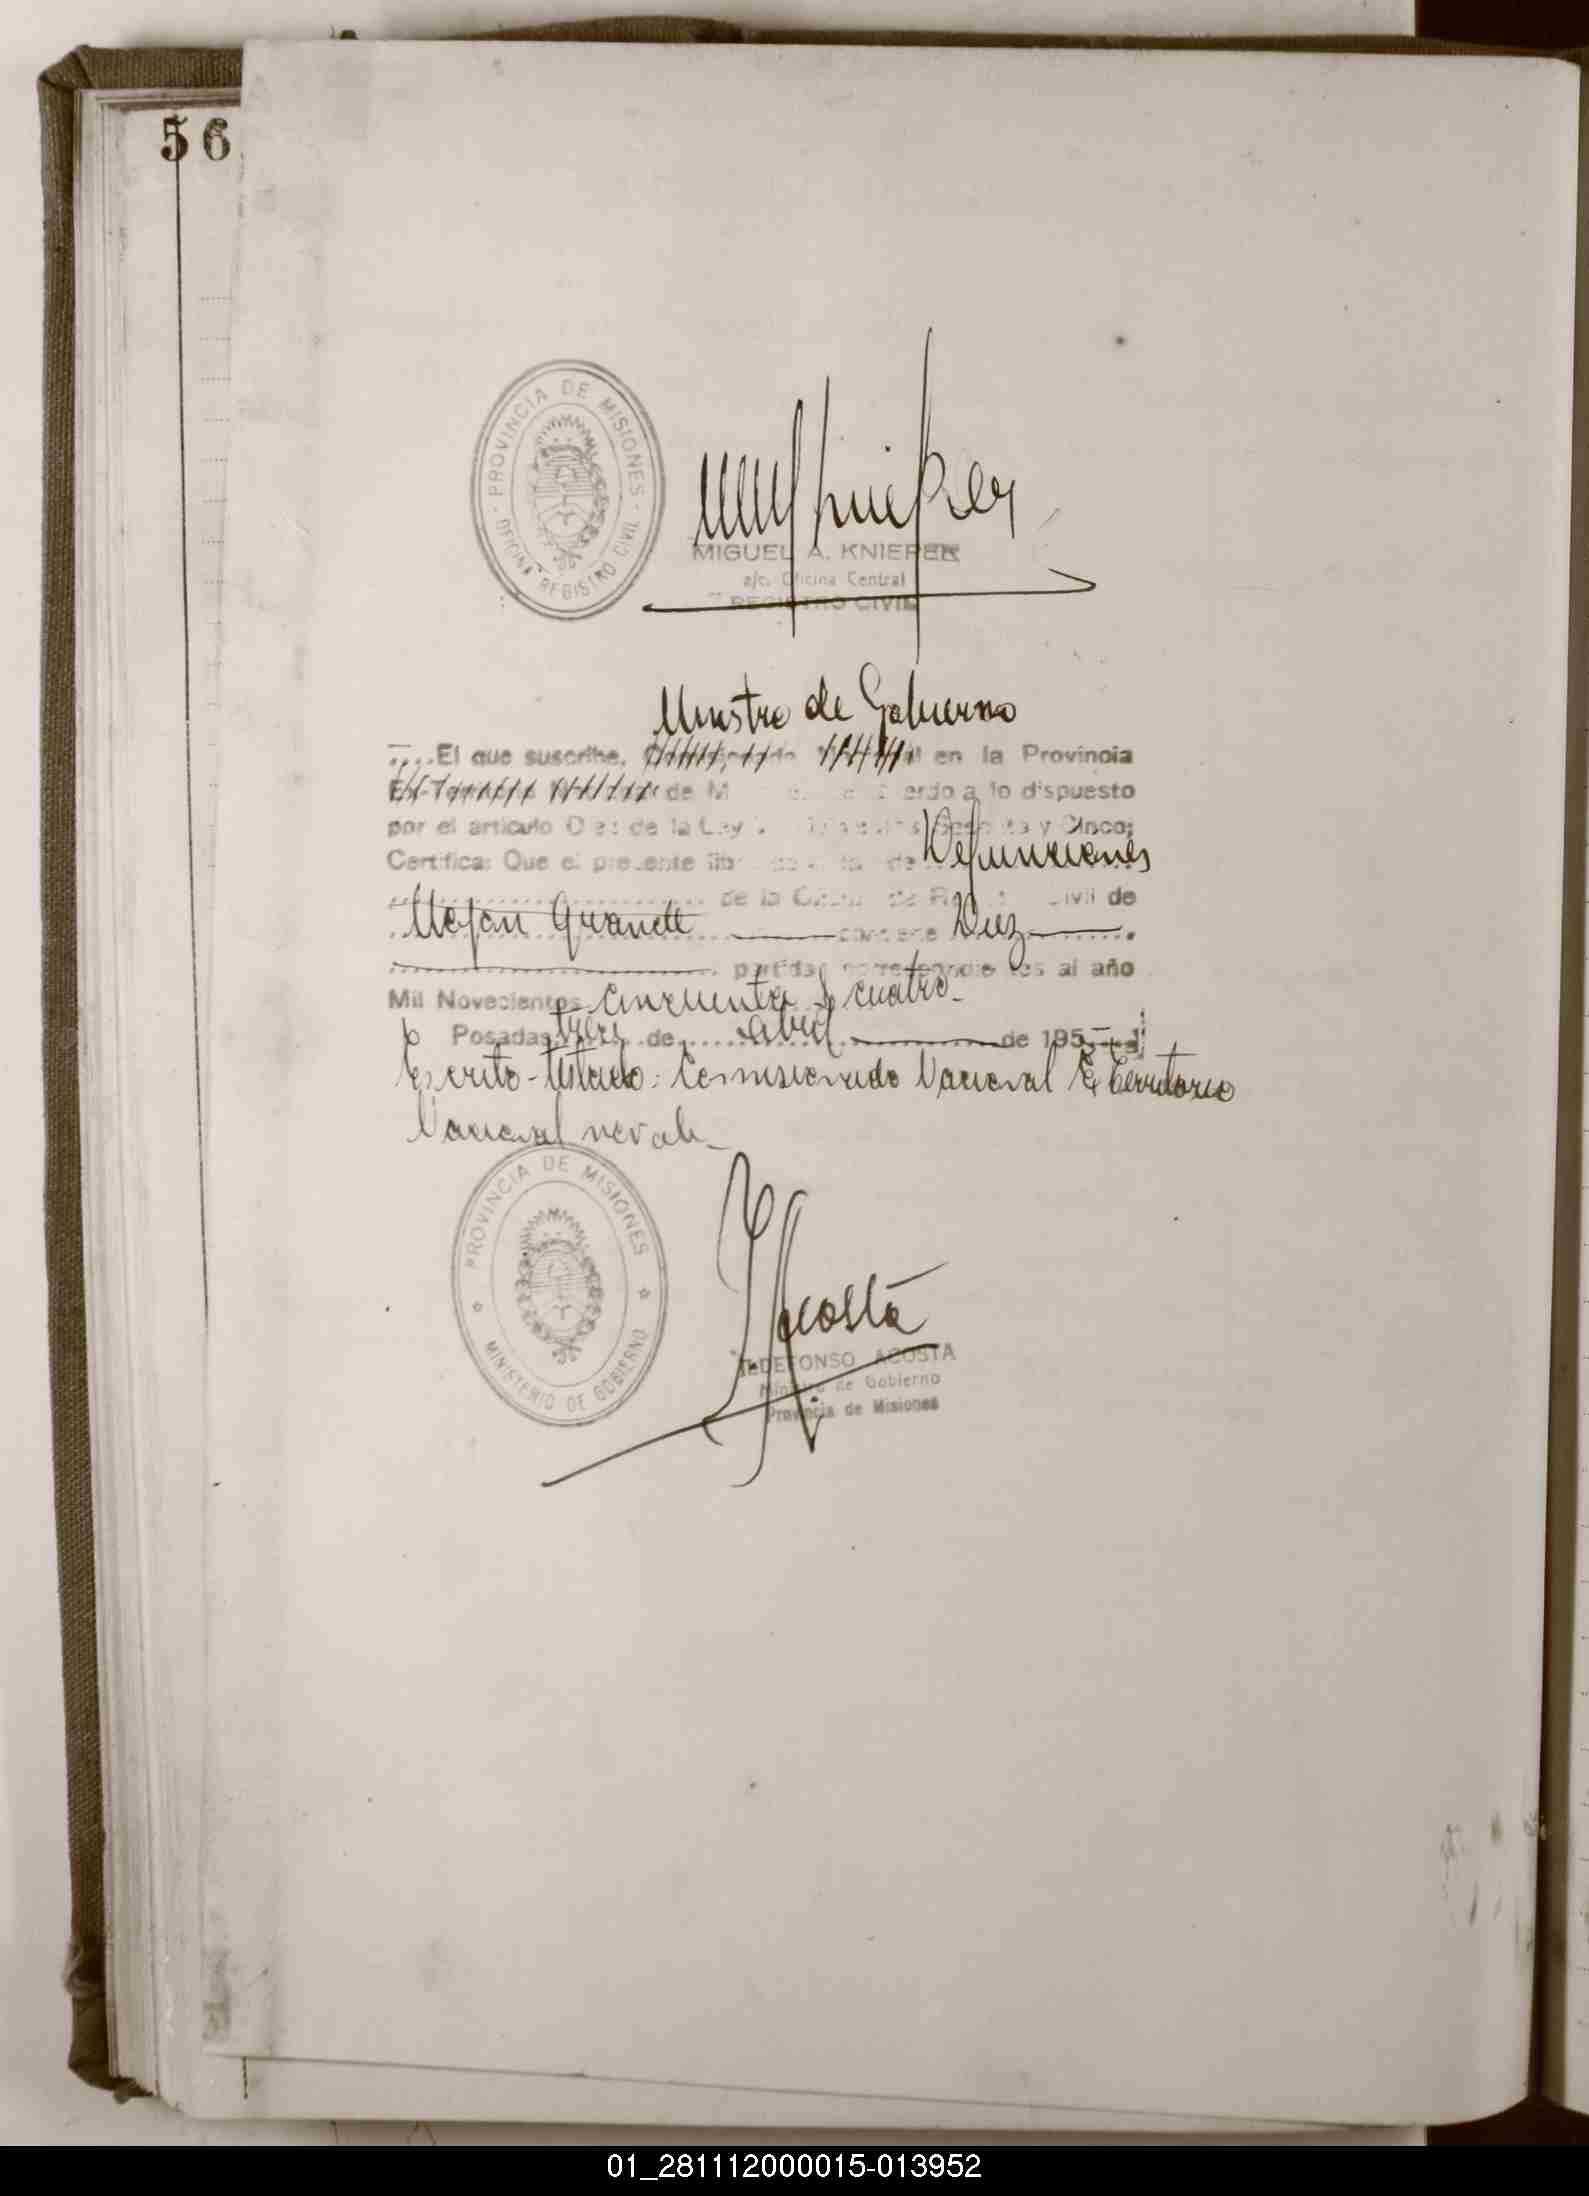 56
PROVINCIA DE MISIONES
OFICINA REGISTRO CIVIL
MIGUEL A. KNIEPER
a/c. Oficina Central
REGISTRO CIVIL
Ministro de Gobierno
El que suscribe, en la Provincia
de M erdo a lo dispuesto
por el artículo Diez de la Ley y Cinco;
Certifica: Que el presente lib de Defunciones
de la de Civil de
Mojón Grande contiene Diez
partidas correspondientes al año
Mil Novecientos cincuenta y cuatro
Posadas, de abril de 195
Escrito - testado: Comisionado Nacional Ex Territorio
Nacional no vale
PROVINCIA DE MISIONES
MINISTERIO DE GOBIERNO
Acosta
ILDEFONSO ACOSTA
Ministro de Gobierno
Provincia de Misiones
01_281112000015-013952